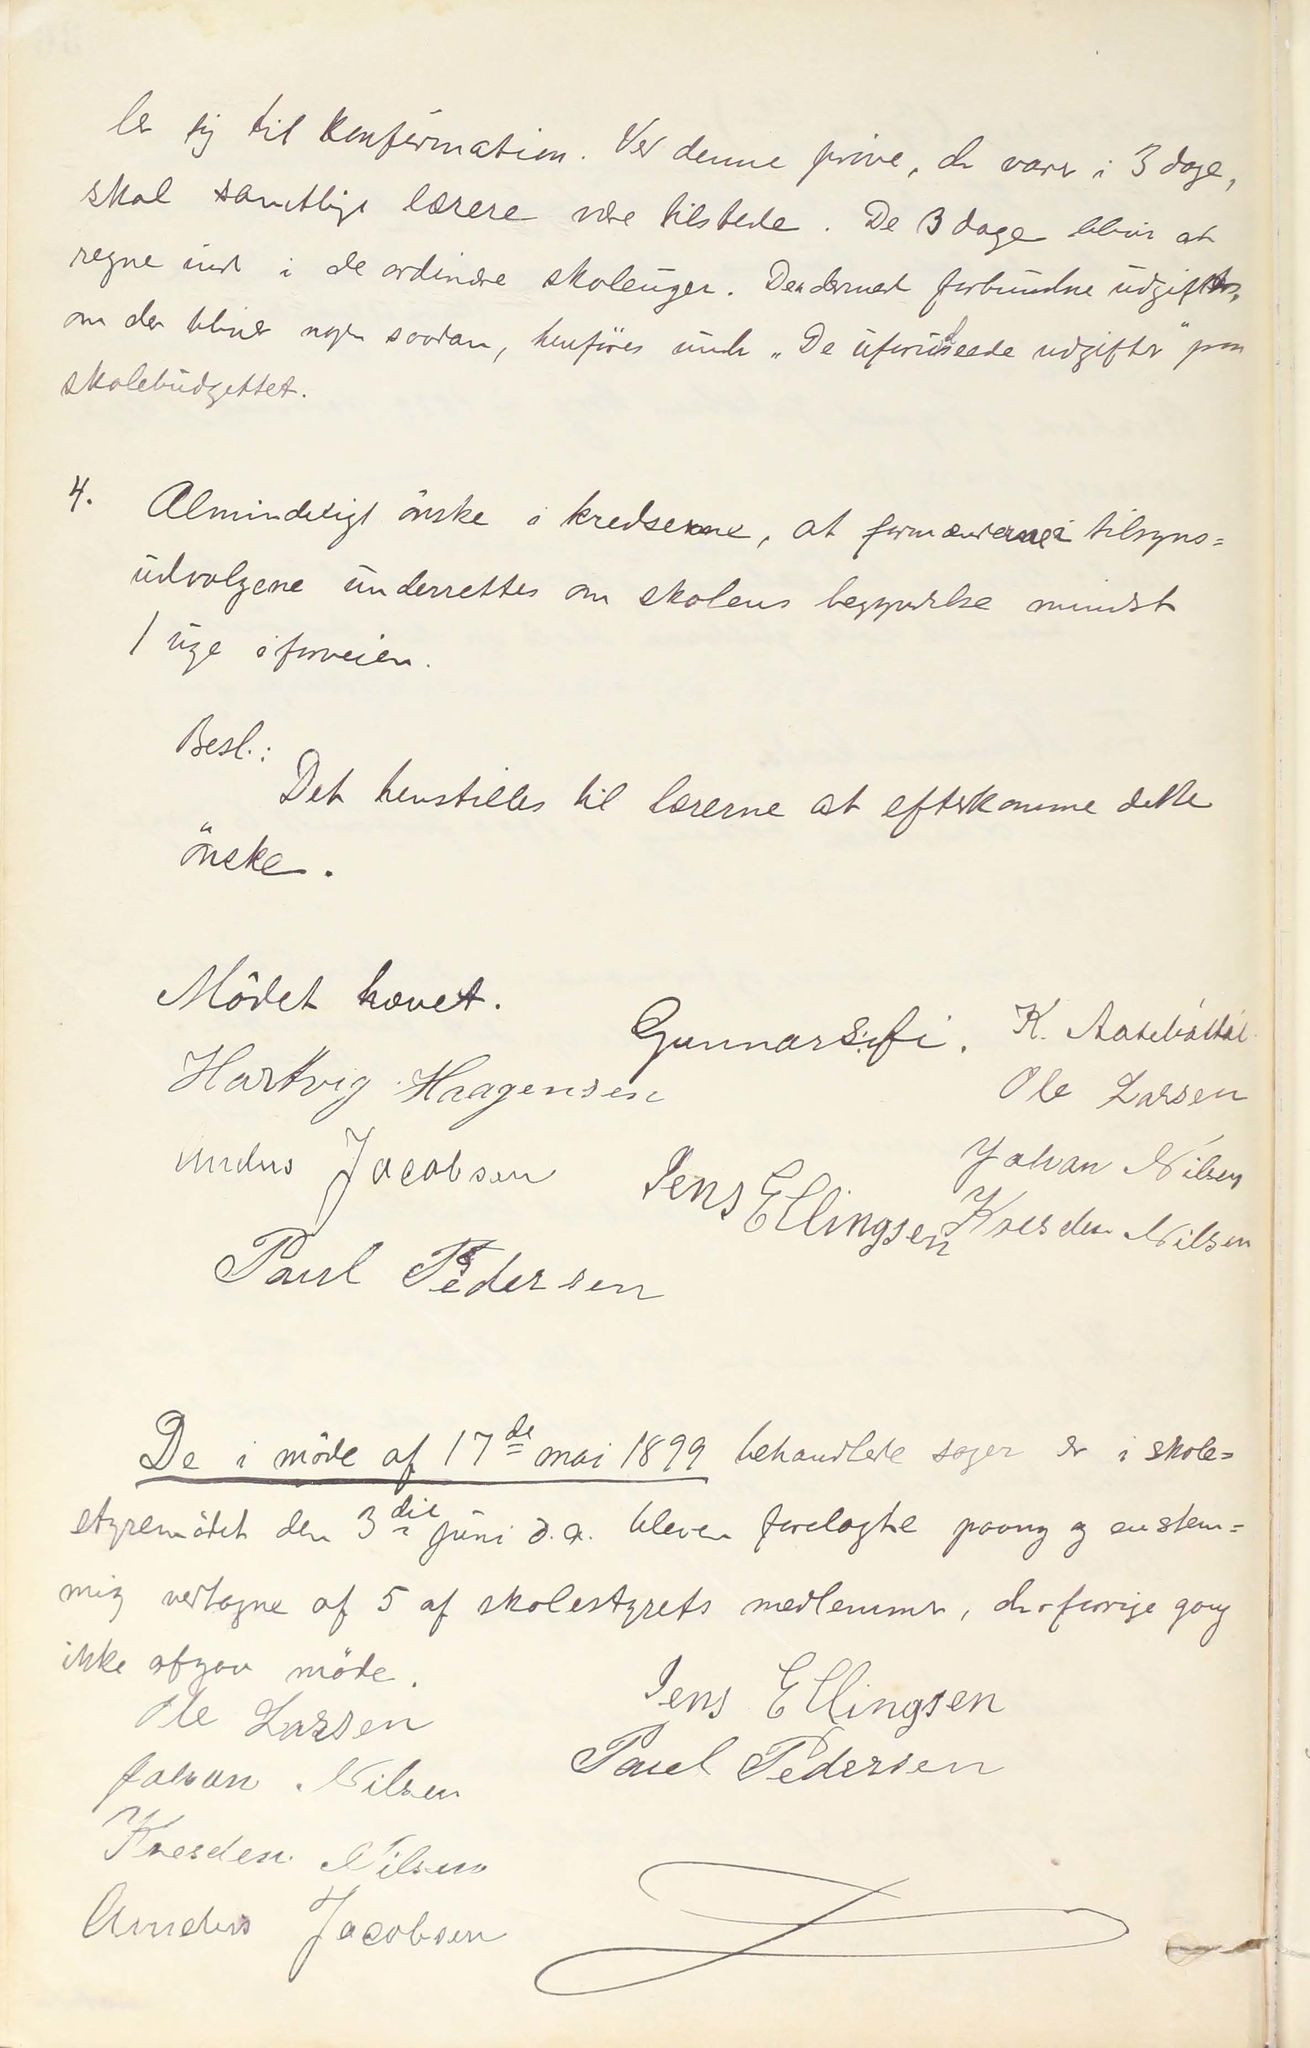 ler sig til konfirmation. Ved denne prøve, der varer i 3 dage,
skal samtlige lærere være tilstede. De 3 dage bliver at
regne ind i de ordinære skoleuger. De dermed forbundne udgifter,
om der bliver nogen saadan, henføres under „De uforudseede udgifter" paa
skolebudgettet.
4. Almindeligt ønske i kredserne, at formændene i tilsyns=
udvalgene underrettes om skolens begyndelse mindst
1 uge i forveien.
Besl.:
Det henstilles til lærerne at efterkomme dette
ønske.
Mødet hævet.
Gunnar
K.
Hartvig Haagensen
Ole Larsen
Anders Jacobsen
Jens Ellingsen
Johan Nilsen
Kresden Nilsen
Paul Pedersen
De i møde af 17de mai 1899 behandlede sager er i skole=
styremødet den 3die juni d.a. bleven forelagte paany og enstem=
mig vedtagne af 5 af skolestyrets medlemmer, der forrige gang
ikke afgav møde.
Jens Ellingsen
Ole Larsen
Paul Pedersen
Johan Nilsen
Kresden Nilsen
Anders Jacobsen